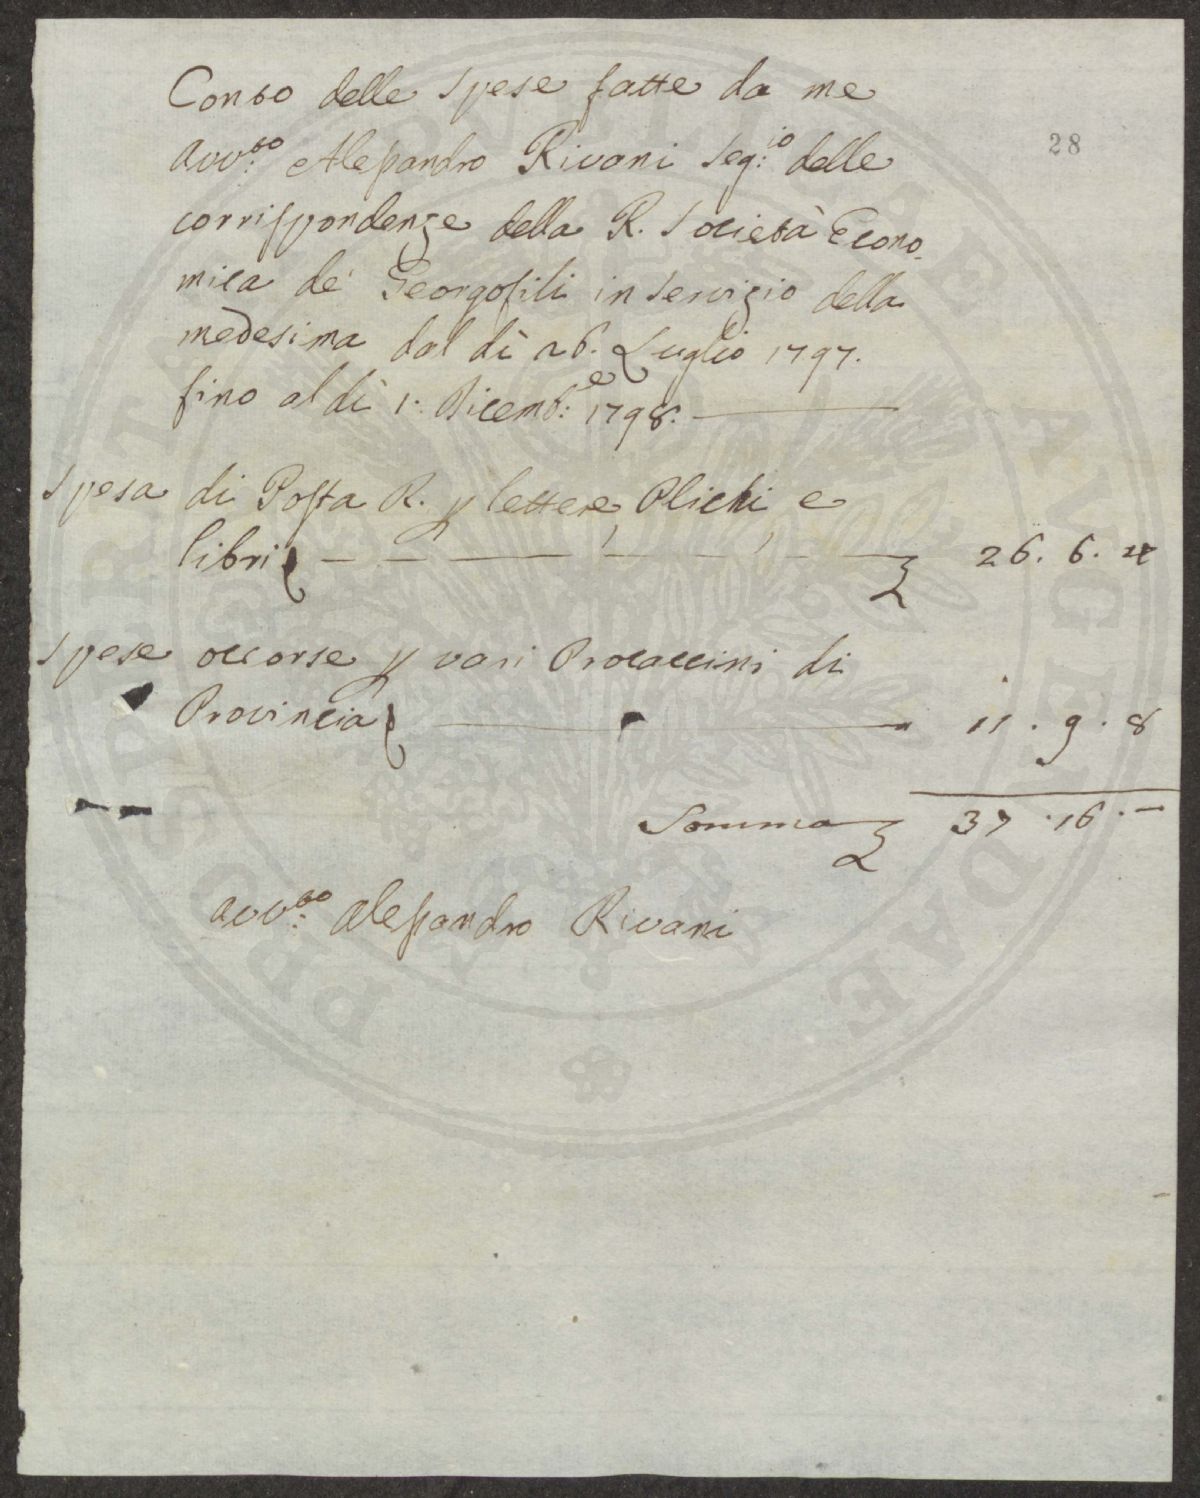 Conto delle Spese fatte da me
Avv:to Alessandro Rivani Seg:io delle
corrispondenze della R. Società Econo-
mica de' Georgofili in Servizio della
medesima dal dì 26. Luglio 1797.
fino al dì 1. Dicemb:e 1798.
28
Spesa di Posta R. p lettere, Plichi e
libri £ 26. 6. 4
Spese occorse p vari Procaccini di
Provincia 11. 9. 8
Somma £ 37. 16. -
Avv:to Alessandro Rivani
PROSPERITATI PUBLICAE AUGENDAE